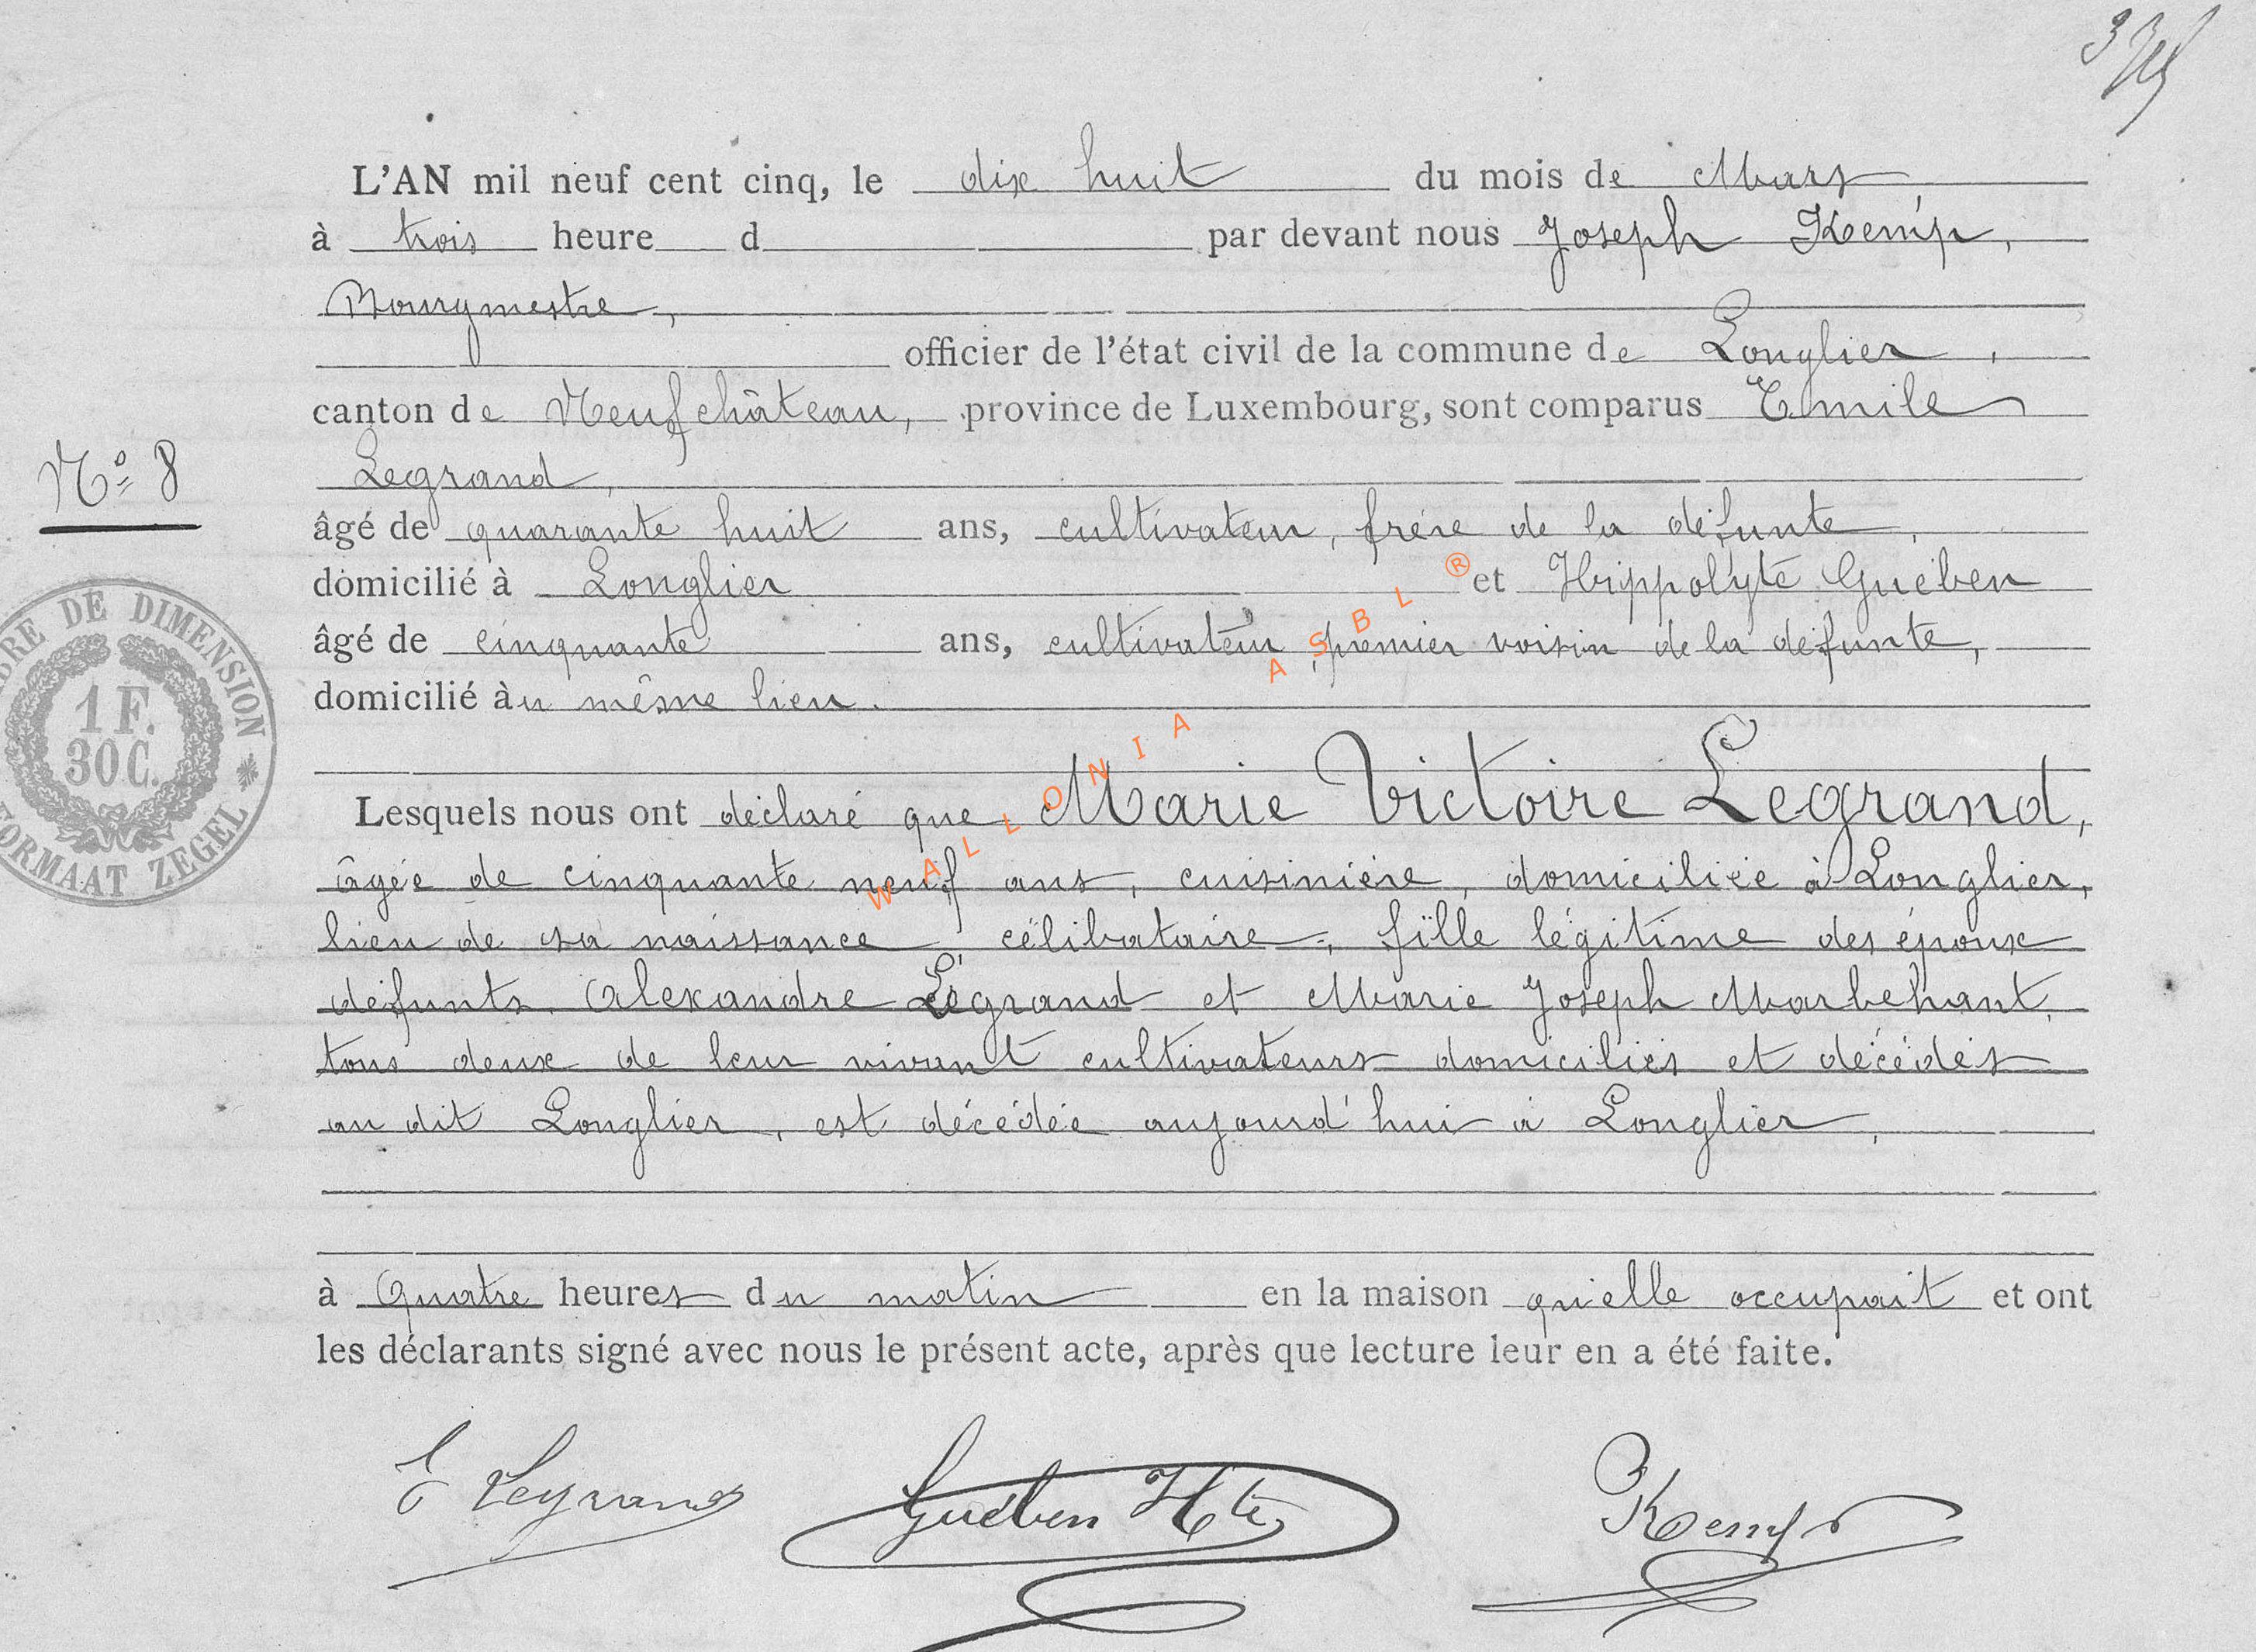 L'AN mil neuf cent cinq, le dix huit du mois de Mars
à trois heure d par devant nous Joseph Kemp,
Bourgmestre,
officier de l'état civil de la commune de Longlier,
canton de Neufchâteau, province de Luxembourg, sont comparus Emile
Legrand,
Nº 8
âgé de quarante huit ans, cultivateur, frère de la défunte,
domicilié à Longlier et Hippolyte Guében
âgé de cinquante ans, cultivateur, premier voisin de la défunte,
domicilié àu même lieu.
BRE DE DIMENSION
1 F.
30 C.
FORMAAT ZEGEL
Lesquels nous ont déclaré que Marie Victoire Legrand,
âgée de cinquante neuf ans, cuisinière, domiciliée à Longlier,
lieu de sa naissance, célibataire, fille légitime des époux
défunts, Alexandre Legrand et Marie Joseph Marbehant,
tous deux de leur vivant cultivateurs domiciliés et décédés
au dit Longlier, est décédée aujourd'hui à Longlier,
à quatre heures du matin en la maison qu'elle occupait et ont
les déclarants signé avec nous le présent acte, après que lecture leur en a été faite.
E Legrand Guében Hte Kemp
WALLONIA ASBL ®